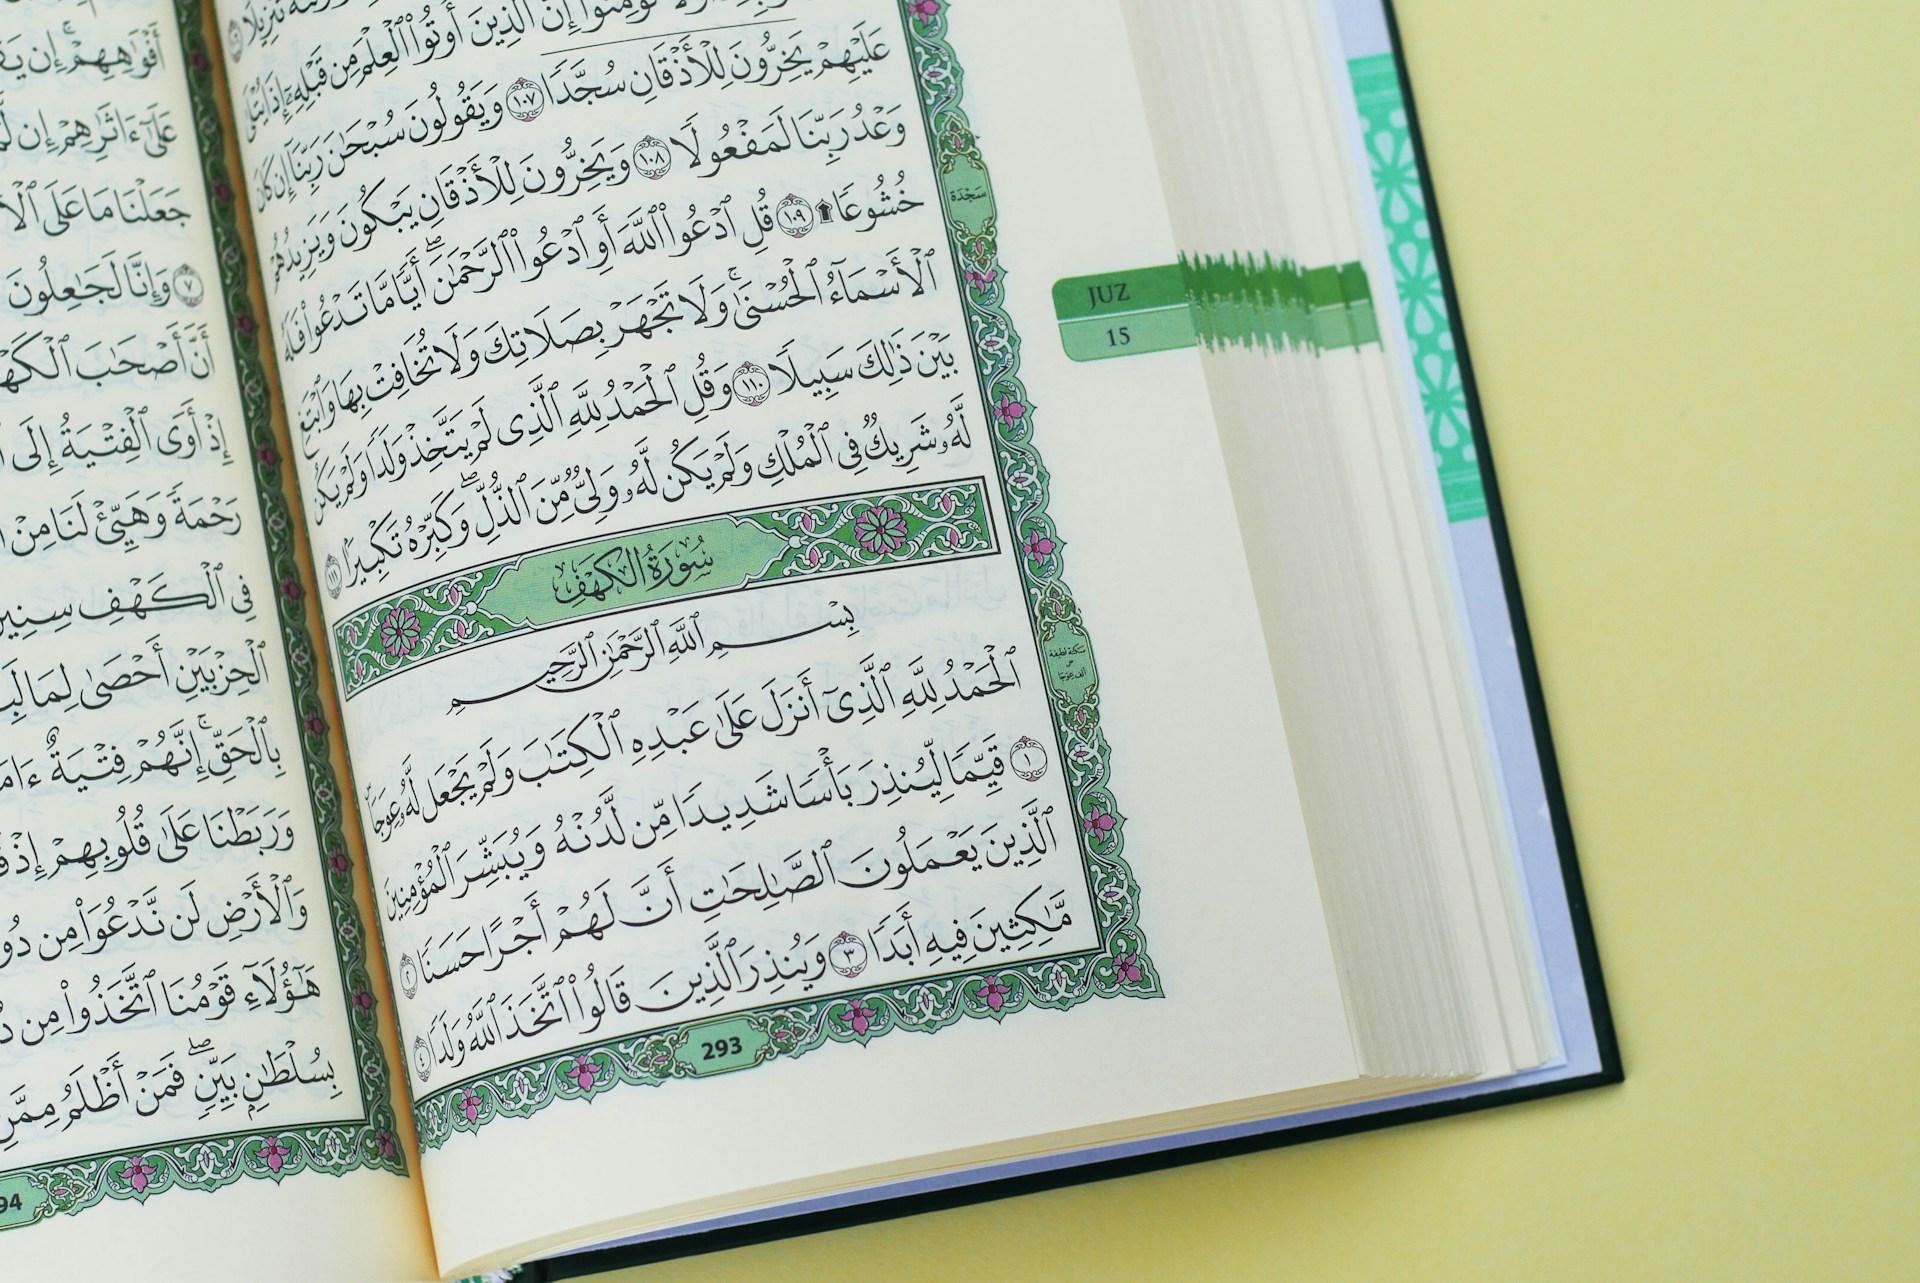 تَنزِيلًا
لَا تُؤْمِنُوٓا۟ إِنَّ ٱلَّذِينَ أُوتُوا۟ ٱلْعِلْمَ مِن قَبْلِهِۦٓ إِذَا يُتْلَىٰ
عَلَيْهِمْ يَخِرُّونَ لِلْأَذْقَانِ سُجَّدًا ١٠٧ وَيَقُولُونَ سُبْحَٰنَ رَبِّنَآ إِن كَانَ
وَعْدُ رَبِّنَا لَمَفْعُولًا ١٠٨ وَيَخِرُّونَ لِلْأَذْقَانِ يَبْكُونَ وَيَزِيدُهُمْ
خُشُوعًا ۩ ١٠٩ قُلِ ٱدْعُوا۟ ٱللَّهَ أَوِ ٱدْعُوا۟ ٱلرَّحْمَٰنَ ۖ أَيًّا مَّا تَدْعُوا۟ فَلَهُ
ٱلْأَسْمَآءُ ٱلْحُسْنَىٰ ۚ وَلَا تَجْهَرْ بِصَلَاتِكَ وَلَا تُخَافِتْ بِهَا وَٱبْتَغِ
بَيْنَ ذَٰلِكَ سَبِيلًا ١١٠ وَقُلِ ٱلْحَمْدُ لِلَّهِ ٱلَّذِى لَمْ يَتَّخِذْ وَلَدًا وَلَمْ يَكُن
لَّهُۥ شَرِيكٌ فِى ٱلْمُلْكِ وَلَمْ يَكُن لَّهُۥ وَلِىٌّ مِّنَ ٱلذُّلِّ ۖ وَكَبِّرْهُ تَكْبِيرًۢا ١١١
سُورَةُ الكَهْفِ
بِسْمِ ٱللَّهِ ٱلرَّحْمَٰنِ ٱلرَّحِيمِ
ٱلْحَمْدُ لِلَّهِ ٱلَّذِىٓ أَنزَلَ عَلَىٰ عَبْدِهِ ٱلْكِتَٰبَ وَلَمْ يَجْعَل لَّهُۥ عِوَجَاۜ
١ قَيِّمًا لِّيُنذِرَ بَأْسًا شَدِيدًا مِّن لَّدُنْهُ وَيُبَشِّرَ ٱلْمُؤْمِنِينَ
ٱلَّذِينَ يَعْمَلُونَ ٱلصَّٰلِحَٰتِ أَنَّ لَهُمْ أَجْرًا حَسَنًا ٢
مَّٰكِثِينَ فِيهِ أَبَدًا ٣ وَيُنذِرَ ٱلَّذِينَ قَالُوا۟ ٱتَّخَذَ ٱللَّهُ وَلَدًا ٤
293
سَجْدَة
سكتة لطيفة
JUZ
15
أَفْوَٰهِهِمْ ۚ إِن
عَلَىٰٓ ءَاثَٰرِهِمْ إِن
جَعَلْنَا مَا عَلَى
٧ وَإِنَّا لَجَٰعِلُونَ
أَنَّ أَصْحَٰبَ
إِذْ أَوَى ٱلْفِتْيَةُ إِلَى
رَحْمَةً وَهَيِّئْ لَنَا مِنْ
فِى ٱلْكَهْفِ سِنِينَ
ٱلْحِزْبَيْنِ أَحْصَىٰ لِمَا
بِٱلْحَقِّ ۚ إِنَّهُمْ فِتْيَةٌ
وَرَبَطْنَا عَلَىٰ قُلُوبِهِمْ إِذْ
وَٱلْأَرْضِ لَن نَّدْعُوَا۟ مِن
هَٰٓؤُلَآءِ قَوْمُنَا ٱتَّخَذُوا۟ مِن
بِسُلْطَٰنٍۭ بَيِّنٍ ۖ فَمَنْ أَظْلَمُ مِمَّنِ
94